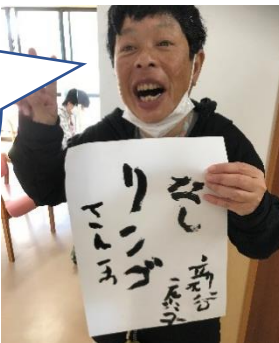 なし
リンゴ
さんま